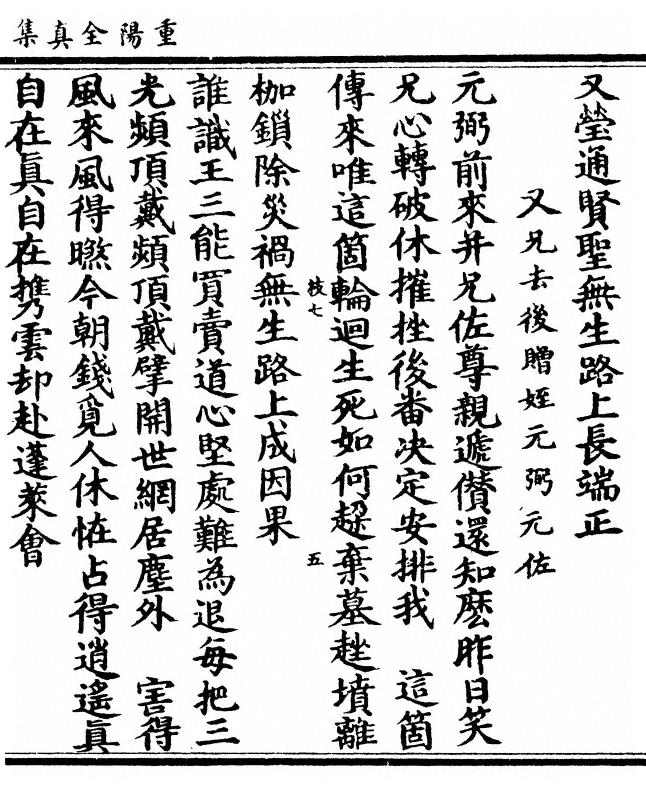 重陽全真集
又瑩通賢聖無生路上長端正
又兄去後贈姪元弼元佐
元弼前來并兄佐尊親遞儹還知麽昨日笑
兄心轉破休摧挫後畨决定安排我　這箇
傳來唯這箇輪迴生死如何趖棄墓趖墳離
枷鎖除災禍無生路上成因果
枝七
五
誰識王三能買賣道心堅處難為退每把三
光頻頂戴頻頂戴擘開世網居塵外　害得
風來風得㬠今朝錢覓人休恠占得逍遙真
自在眞自在携雲却赴蓬萊會